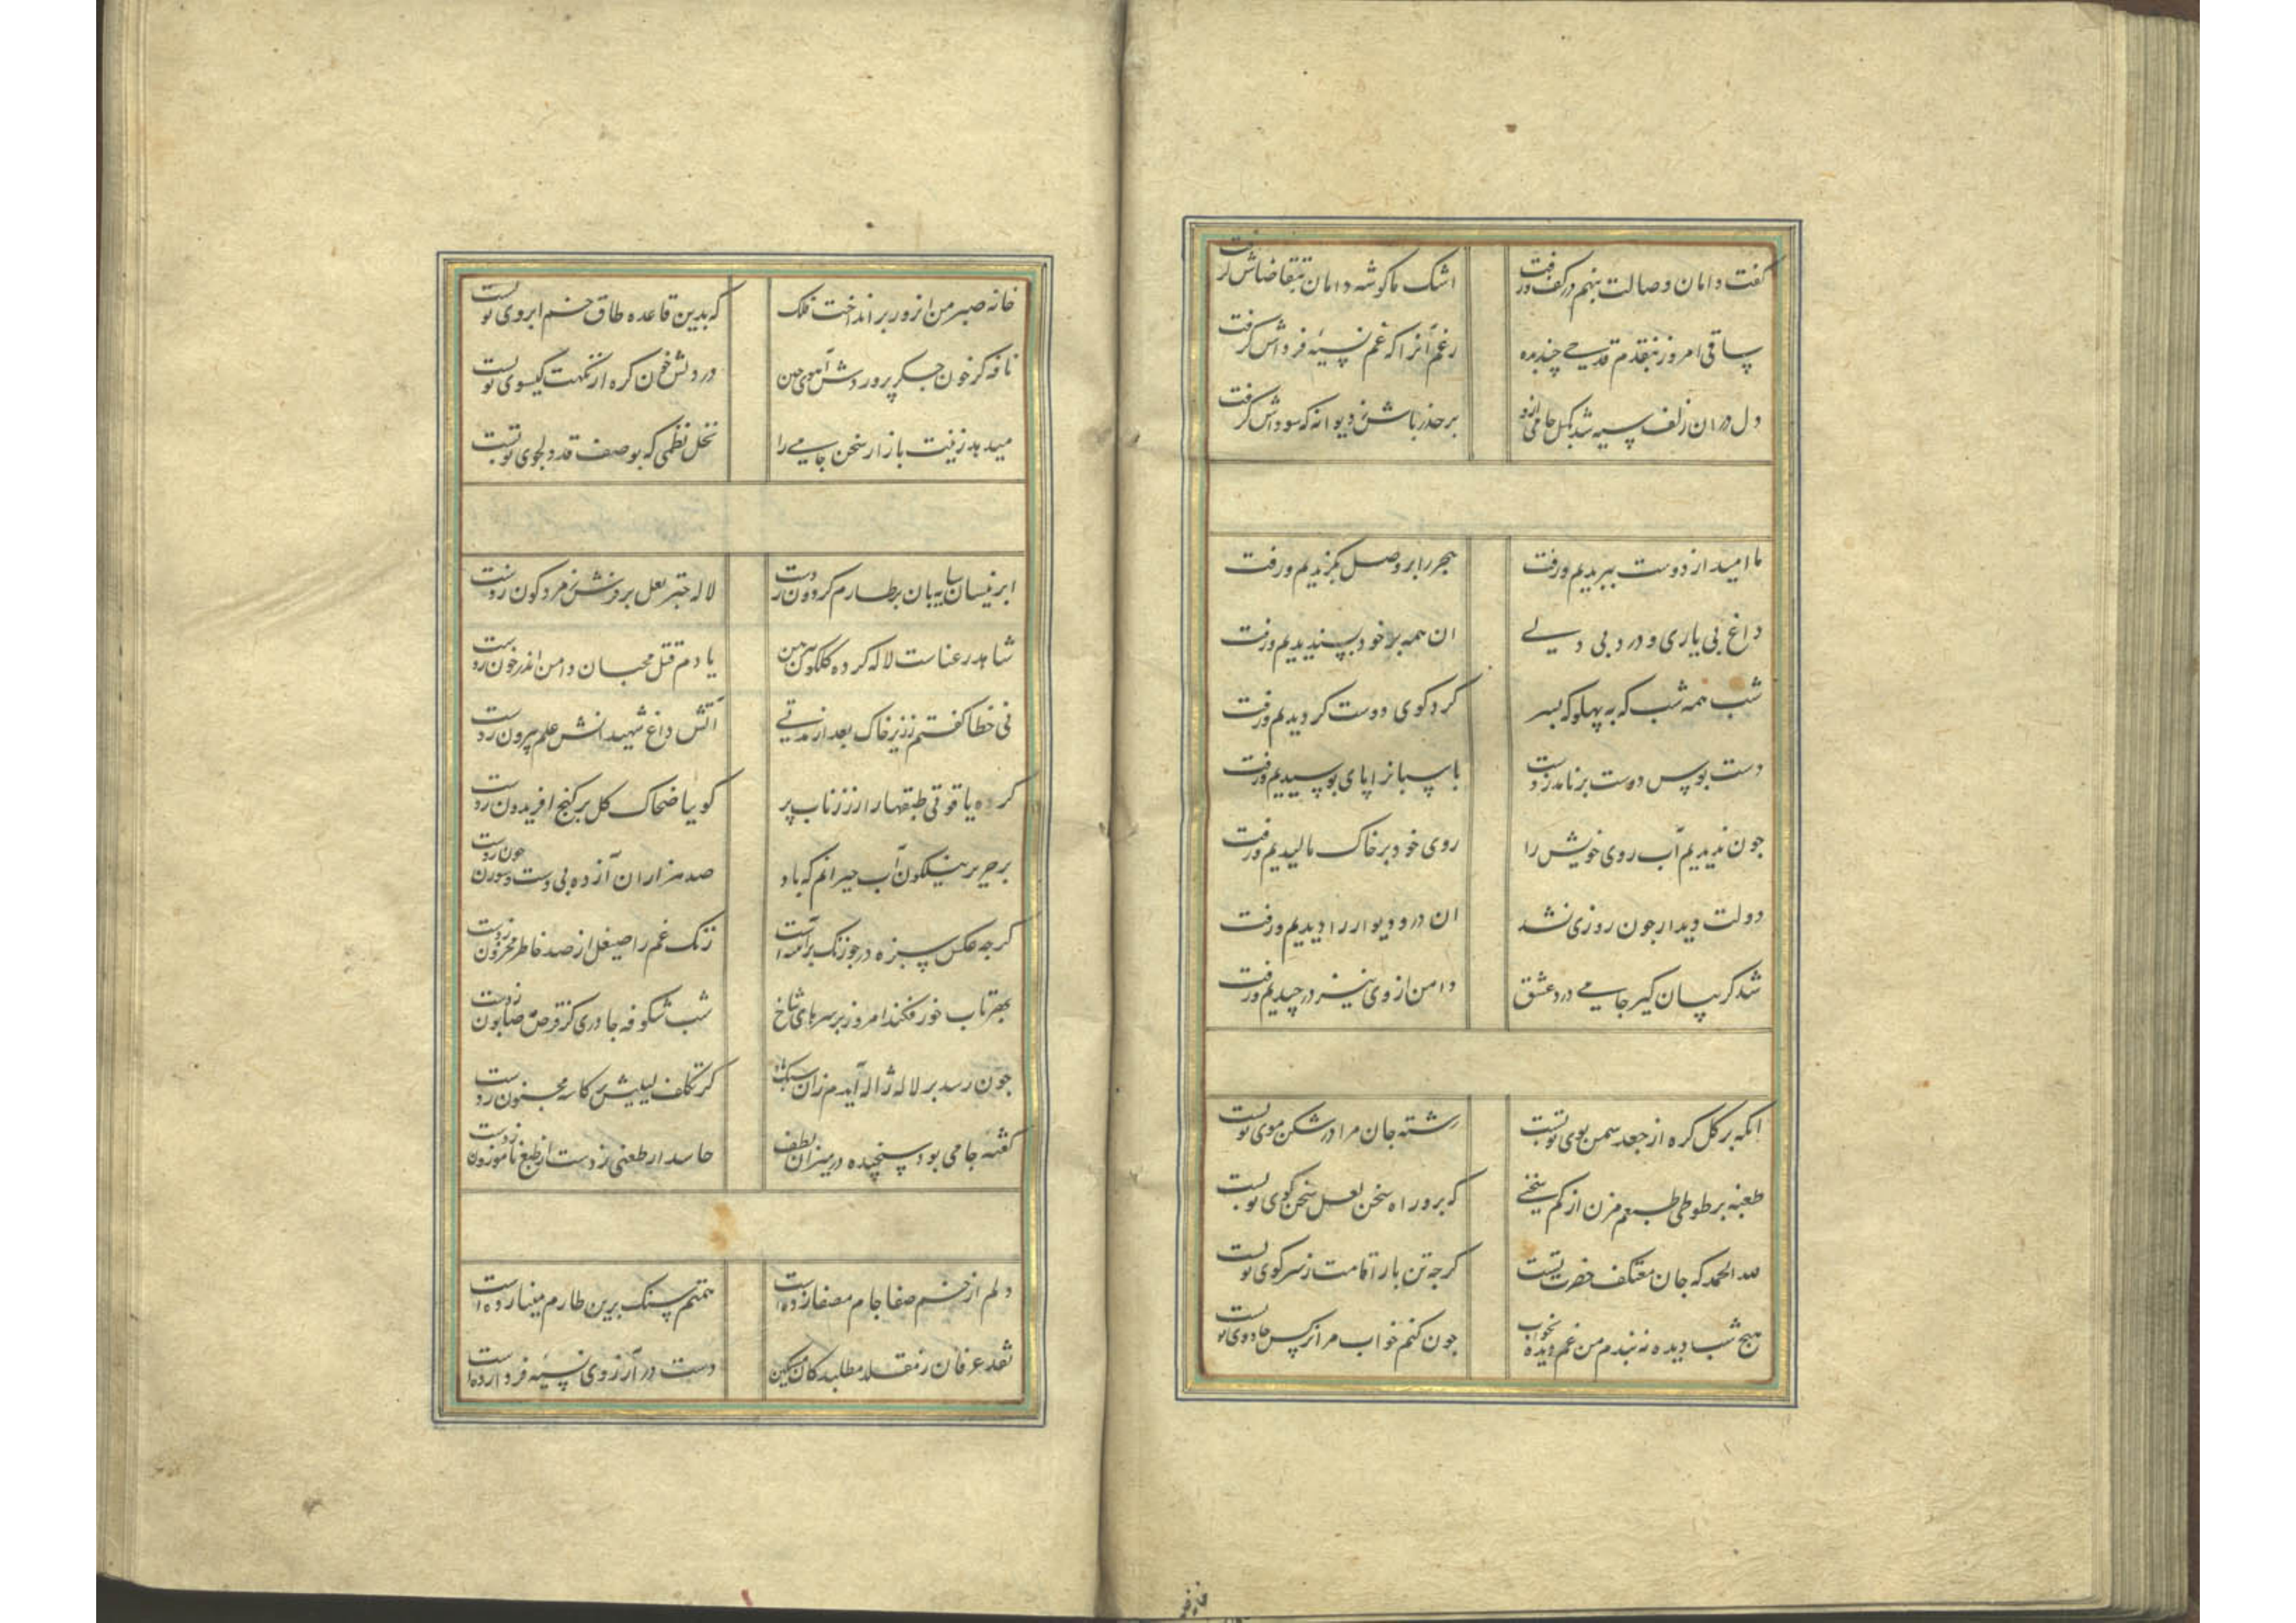 گفت دامان وصالت بنهم در کف و رفت اشک ما گوشه دامان بتقاضاش گرفت
ساقی امروز بنقدم قدحی چند بده رغم آنرا که غم نسیه فرداش گرفت
دل دران زلف سیه شد بگسل جامی ازو بر حذر باش ز دیوانه که سوداش گرفت
ما امید از دوست ببریدیم و رفت هجر را بر وصل بگزیدیم و رفت
داغ بی یاری و درد بی دلی ان همه بر خود پسندیدیم و رفت
شب همه شب که به پهلو که بسر کرد کوی دوست کردیدیم و رفت
دست بوس دوست بر نامد ز دست پاسبانرا پای بوسیدیم و رفت
جون ندیدیم آب روی خویش را روی خود بر خاک مالیدیم و رفت
دولت دیدار جون روزی نشد ان در و دیوار را دیدیم و رفت
شد کریبان کیر جامی درد عشق دامن از وی نیز در چیدیم و رفت
انکه بر کل کره از جعد سمن بوی تو بست رشته جان مرا در شکن موی تو بست
طعنه بر طوطی طبعم مزن از کم سخنی که برو راه سخن لعل سخن کوی تو بست
لله الحمد که جان معتکف حضرت تست کرجه تن بار اقامت ز سر کوی تو بست
هیج شب دیده نه بندم من غم دیده بخواب جون کنم خواب مرا نرکس جادوی تو بست
خانه صبر من از زور بر انداخت فلک که بدین قاعده طاق خم ابروی تو بست
نافه کز خون جکر پروردش آهوی جین در دلش خون کره از نکهت کیسوی تو بست
میدهد زینت بازار سخن جامی را نخل نظمی که بوصف قد دلجوی تو بست
ابر نیسان سایه بان بر طارم کردون زدست لاله جتر لعل بر فرش زمردکون زدست
شاهد رعناست لاله کرده کلکون پیرهن یا دم قتل محبان دامن اندر خون زدست
نی خطا کفتم ز زیر خاک بعد از مدتی آتش داغ شهیدانش علم بیرون زدست
کرده یاقوتی طبقها را ز زر ناب پر کوییا ضحاک کل بر کنج افریدون زدست
بر حریر نیلکون آب حیرانم که باد صد هزاران آژده بی دست و سوزن جون زدست
کرجه عکس سبزه در جو زنک بر آبست زنک غم را صیقل از صد خاطر محزون زدست
بهر تاب خور فکند امروز بر سرهای شاخ شب شکوفه جادری کز قرص صابون زدست
جون رسد بر لاله ژاله آیدم زان سنک یاد کز تکلف لیلیش بر کاسه مجنون زدست
کفته جامی بود سنجیده در میزان لطف حاسد ار طعنی زدست از طبع ناموزون زدست
دلم از خم صفا جام مصفا زده است همتم سنک برین طارم مینا زده است
نقد عرفان ز مقلد مطلب کان مسکین دست در آرزوی نسیه فردا زده است